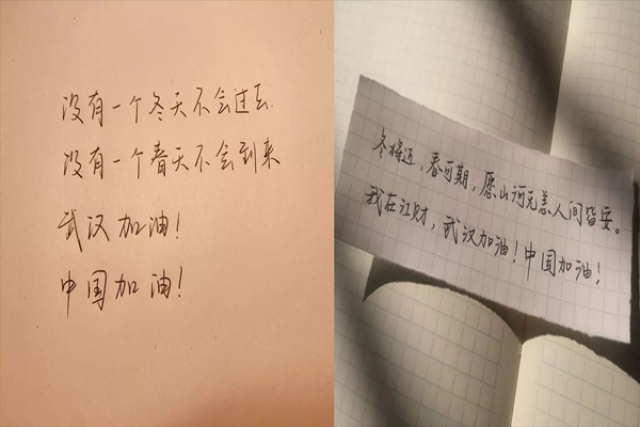 没有一个冬天不会过去
没有一个春天不会到来
武汉加油!
中国加油!
冬将远,春可期,愿山河无恙人间皆安。
我在江财,武汉加油!中国加油!